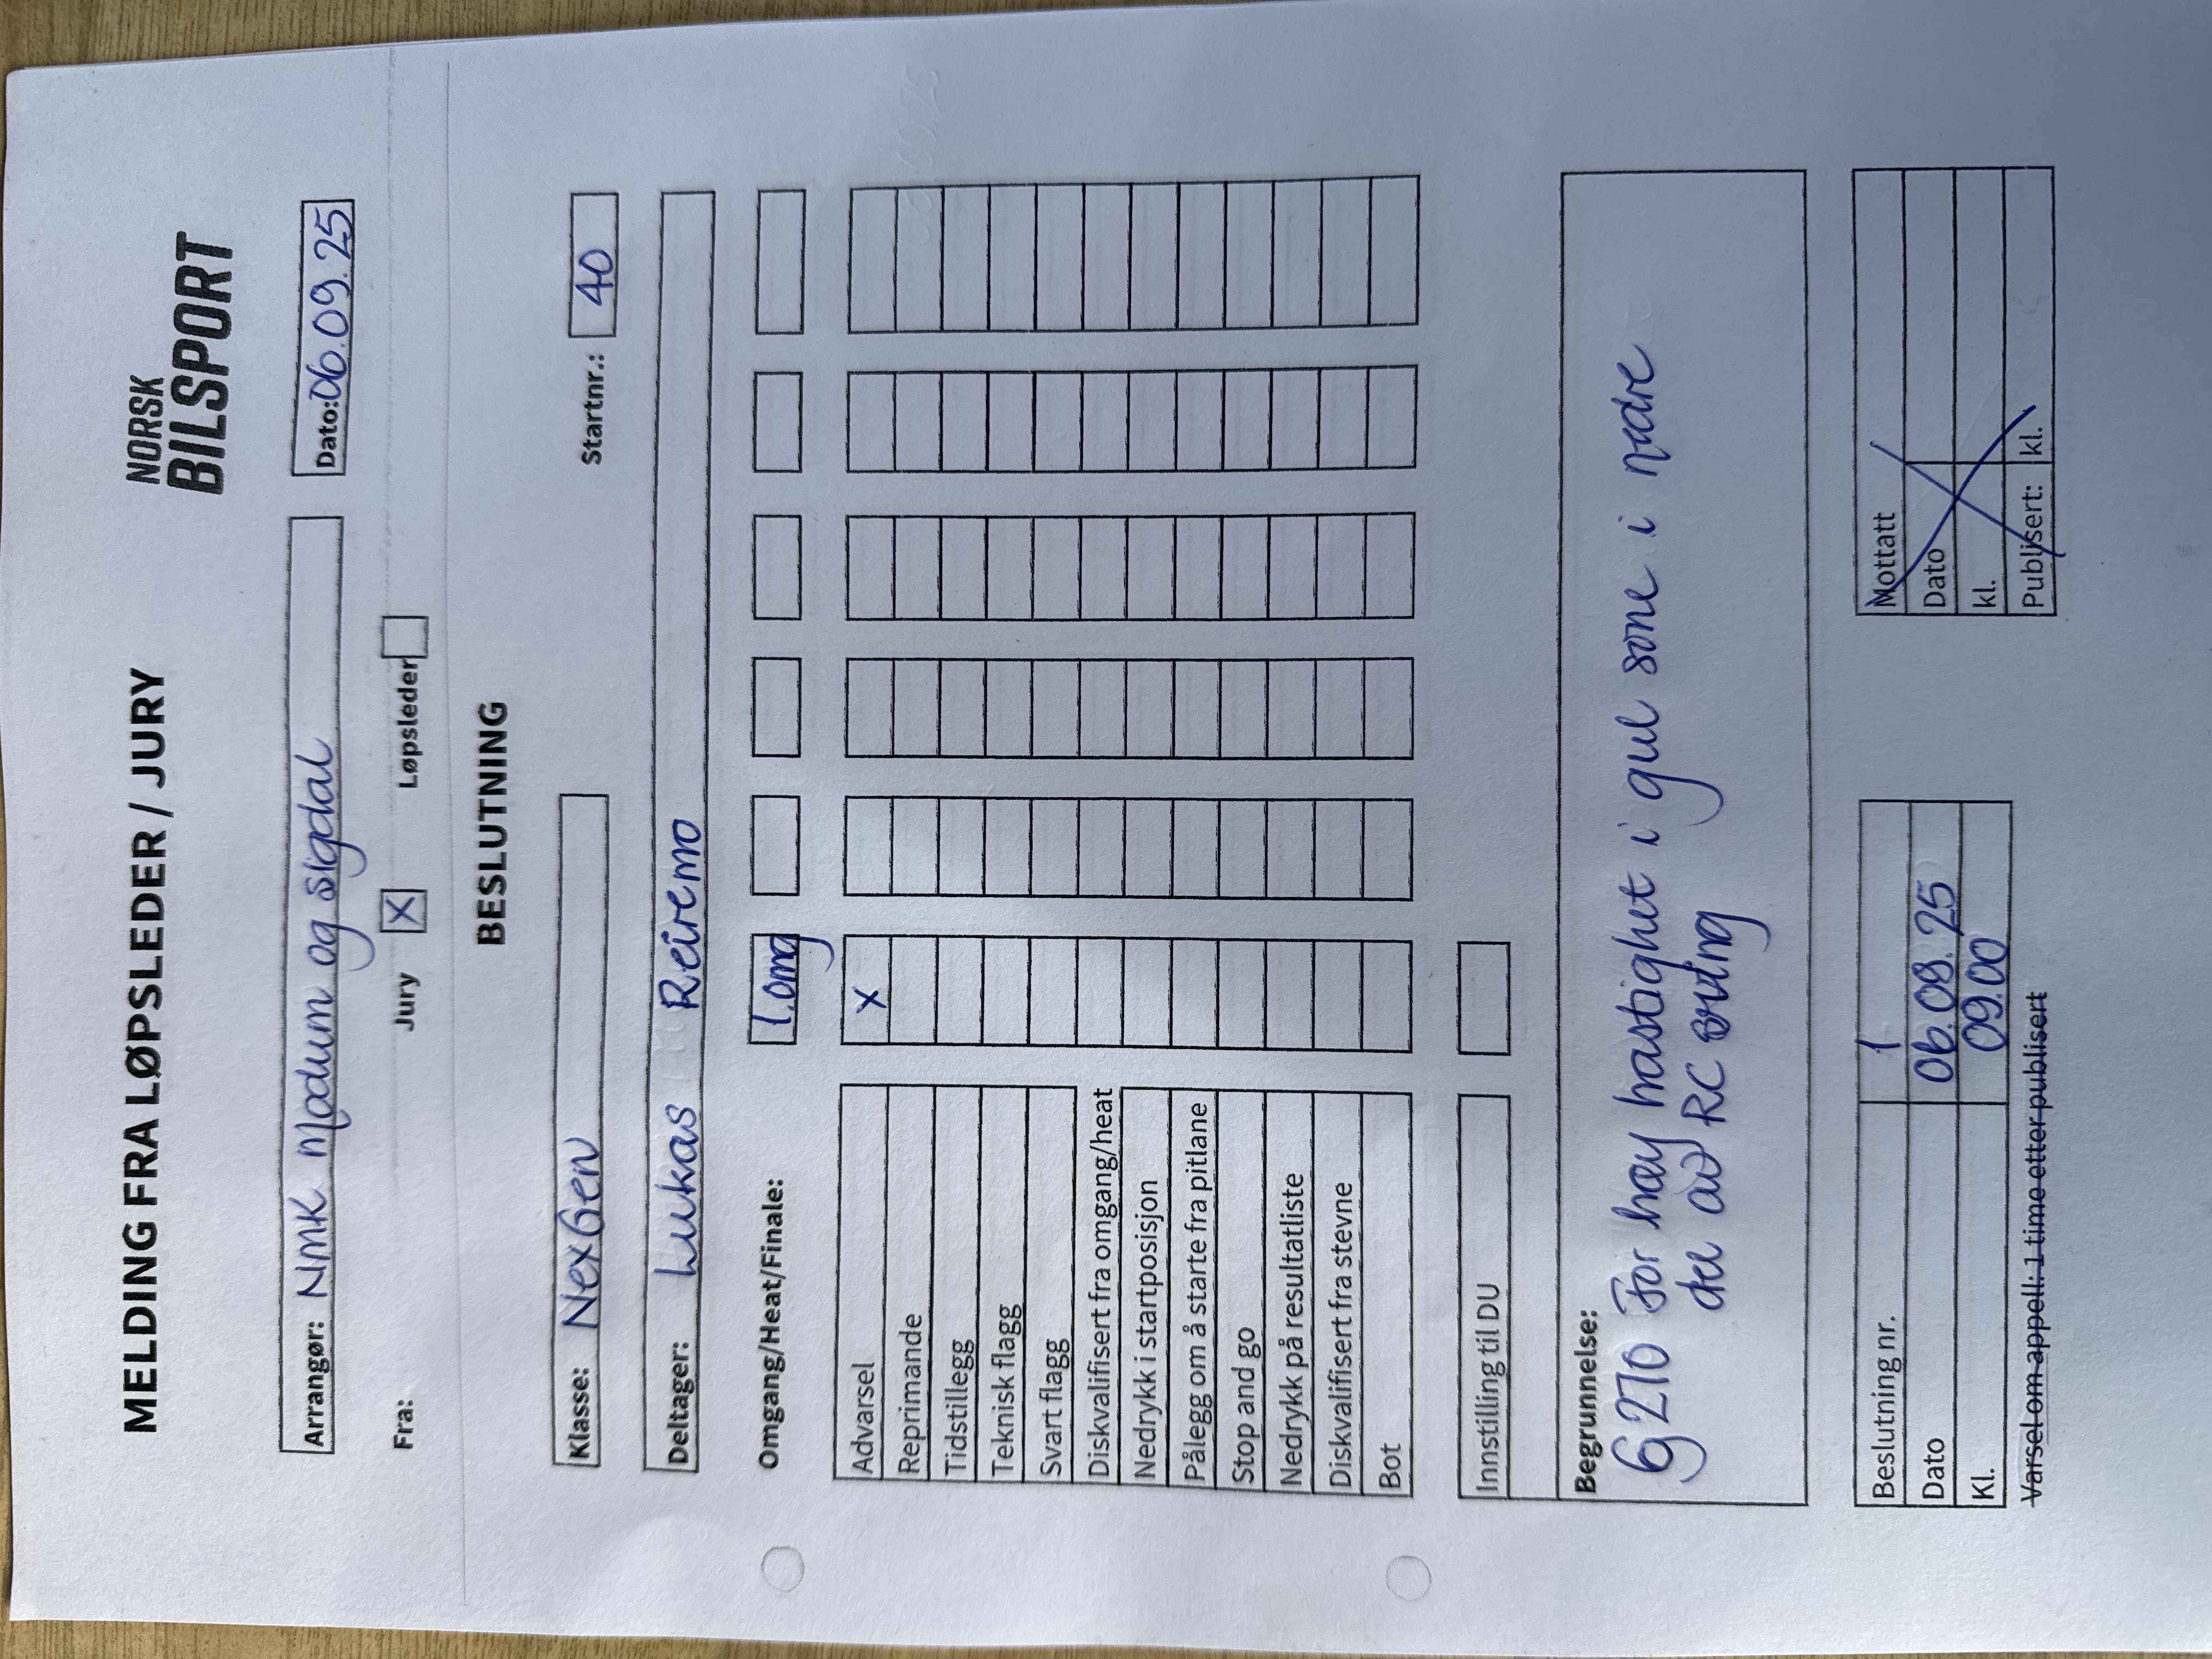 MELDING FRA LØPSLEDER / JURY
NORSK
BILSPORT
Arrangør: NMK Modum og sigdal
Dato: 06.09.25
Fra: Jury X Løpsleder
BESLUTNING
Klasse: NexGen Startnr.: 40
Deltager: Lukas Reiremo
Omgang/Heat/Finale: 1.omg
Advarsel X
Reprimande
Tidstillegg
Teknisk flagg
Svart flagg
Diskvalifisert fra omgang/heat
Nedrykk i startposisjon
Pålegg om å starte fra pitlane
Stop and go
Nedrykk på resultatliste
Diskvalifisert fra stevne
Bot
Innstilling til DU
Begrunnelse:
§ 270 For høy hastighet i gul sone i nedre
del av RC sving
Beslutning nr. 1
Dato 06.09.25
Kl. 09.00
Varsel om appell: 1 time etter publisert
Mottatt
Dato
kl.
Publisert: kl.